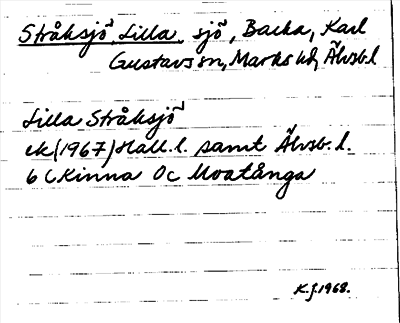 Stråksjö, Lilla, sjö, Backa, Karl
Gustavs sn, Marks hd, Älvsb.l
Lilla Stråksjö
ek (1967) Hall.l. samt Älvsb.l.
6 C Kinna 0c Moatånga
K.J. 1968.